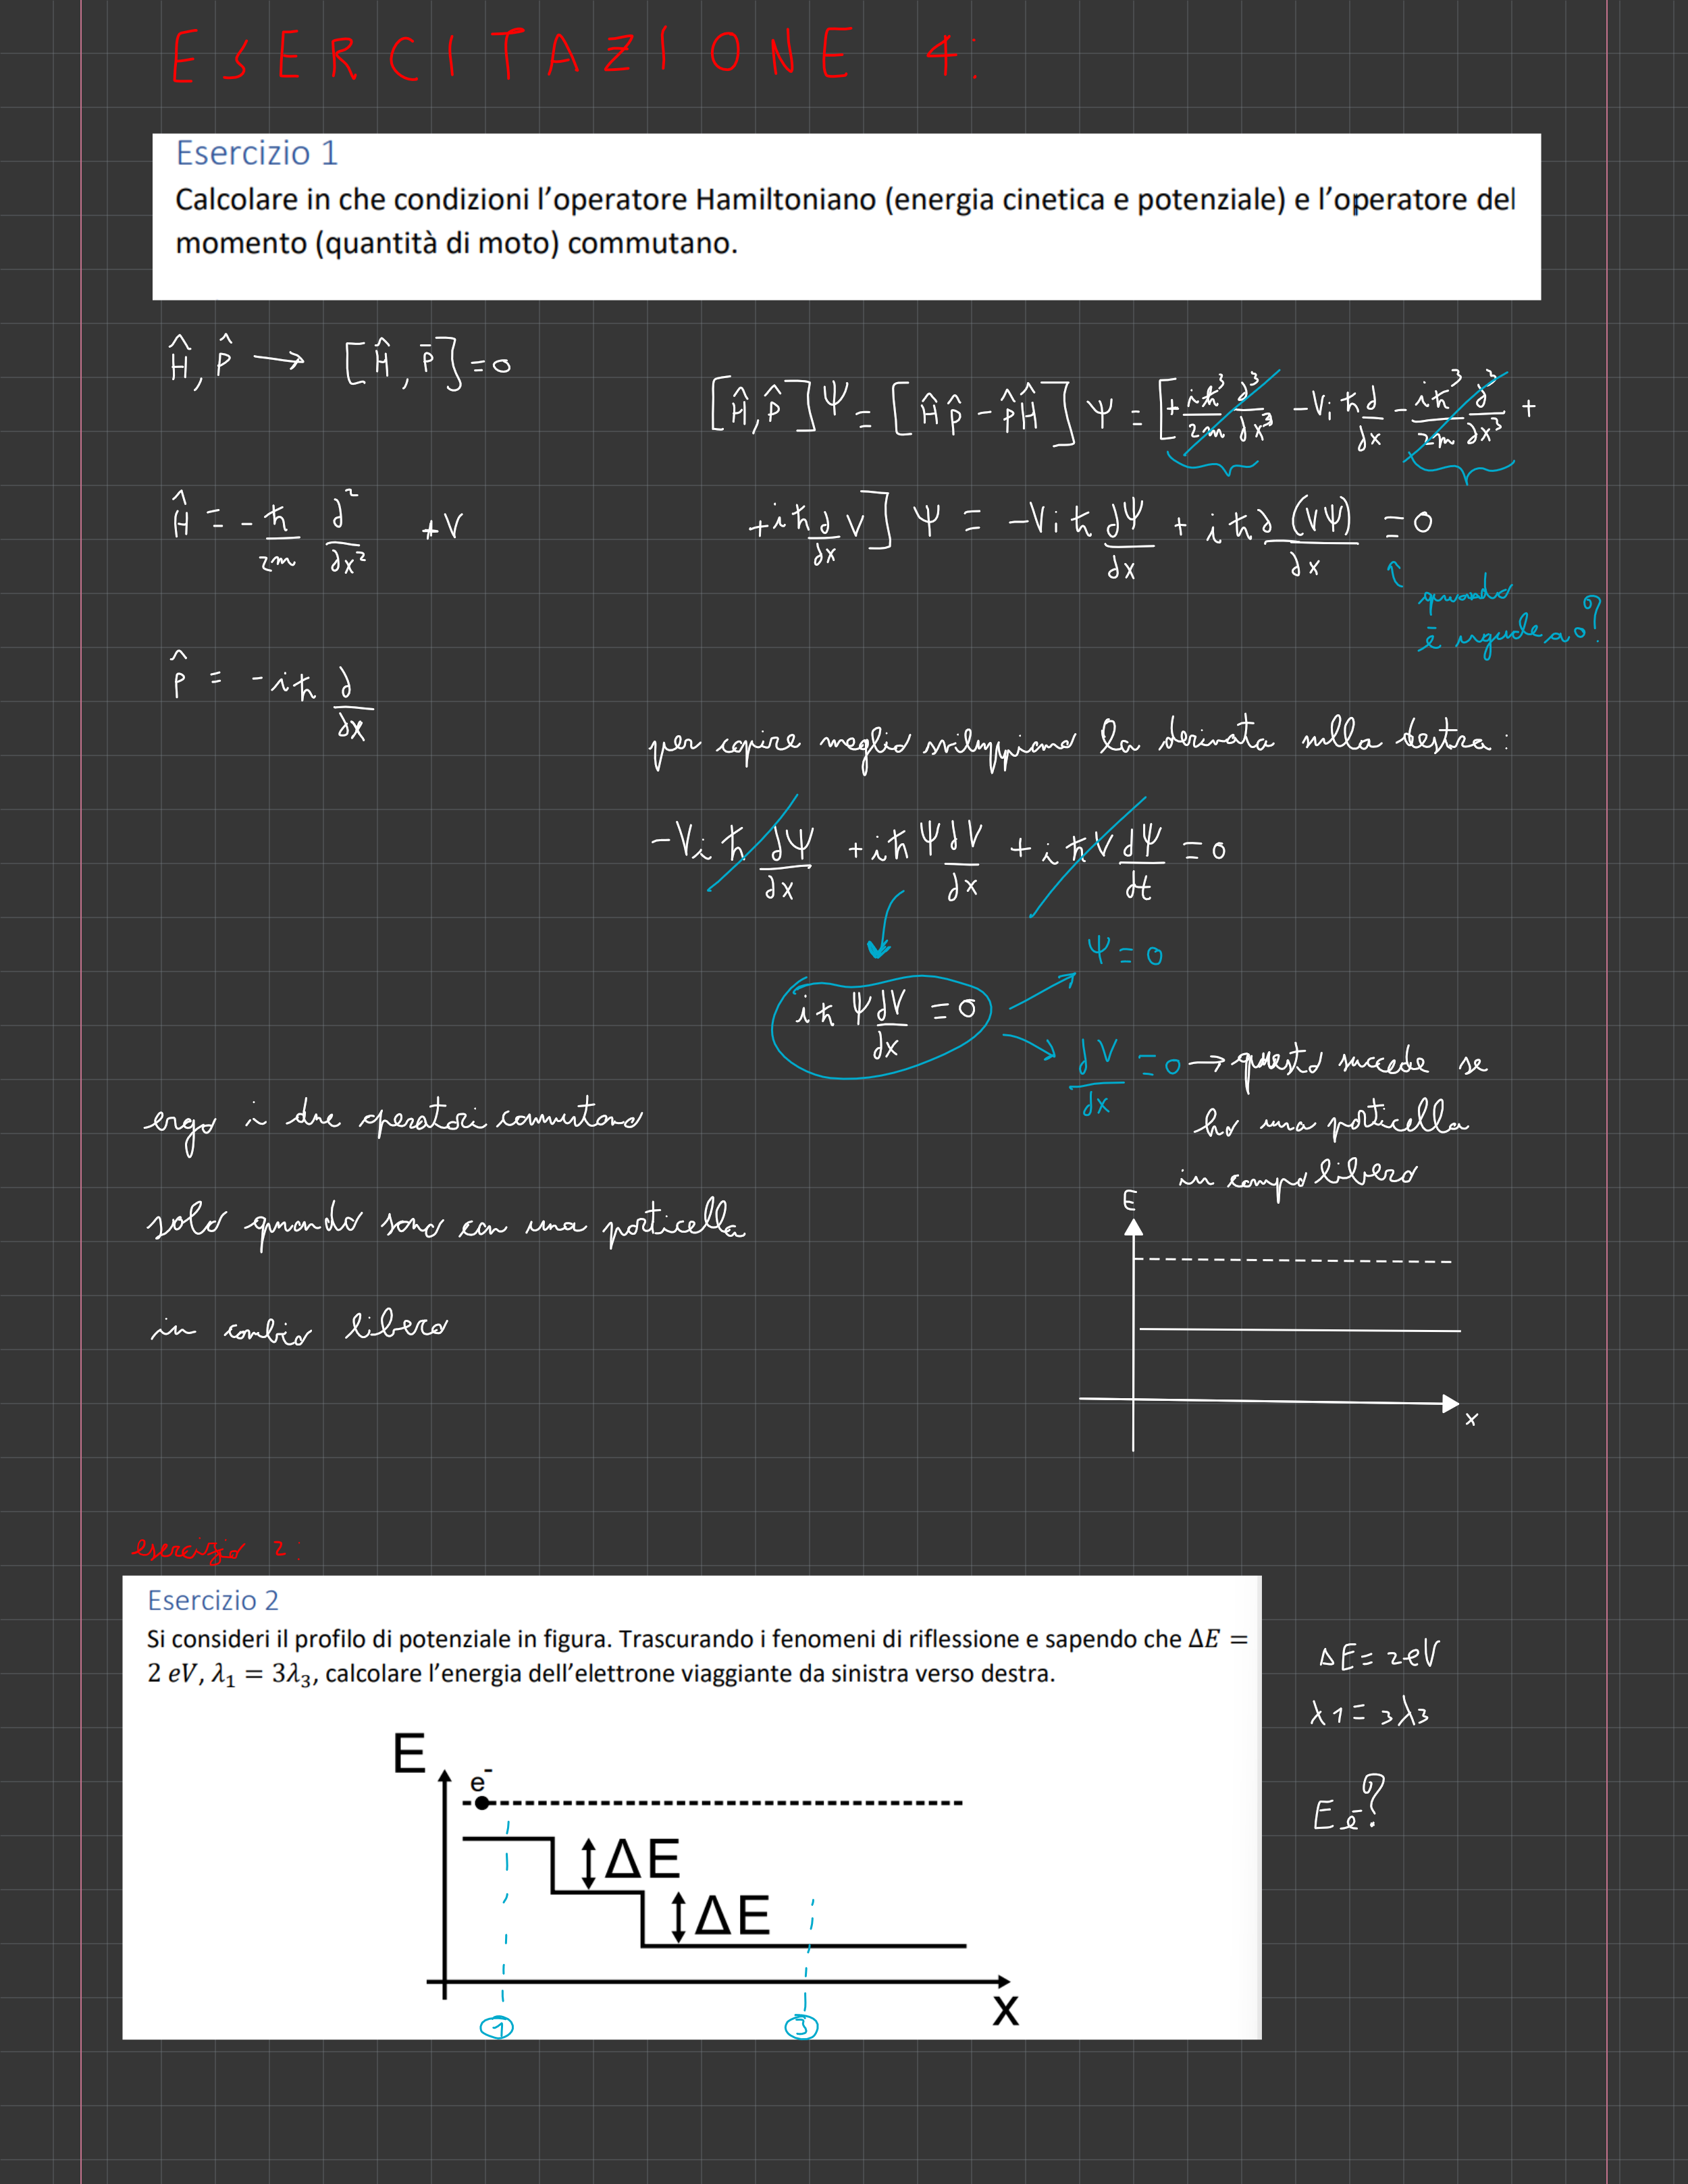 ESERCITAZIONE 4:
Esercizio 1
Calcolare in che condizioni l'operatore Hamiltoniano (energia cinetica e potenziale) e l'operatore del
momento (quantità di moto) commutano.
Ĥ, P̂ → [Ĥ, P̄] = 0
[Ĥ, P̂]Ψ = [ĤP̂ - P̂Ĥ]Ψ = [+ iħ³/2m ∂³/∂x³ - Viħ ∂/∂x - iħ³/2m ∂³/∂x³ +
Ĥ = - ħ/2m ∂²/∂x² + V
+ iħ ∂/∂x V] Ψ = - Viħ ∂Ψ/∂x + iħ ∂(VΨ)/∂x = 0
quando
è uguale a 0?
P̂ = - iħ ∂/∂x
per capire meglio sviluppiamo la derivata sulla destra:
- Viħ ∂Ψ/∂x + iħ Ψ dV/dx + iħ V dΨ/dt = 0
Ψ = 0
iħ Ψ dV/dx = 0
dV/dx = 0 → questo succede se
ho una particella
in campo libero
ergo i due operatori commutano
solo quando sono con una particella
in cambio libero
E
x
esercizio 2:
Esercizio 2
Si consideri il profilo di potenziale in figura. Trascurando i fenomeni di riflessione e sapendo che ΔE =
2 eV, λ₁ = 3λ₃, calcolare l'energia dell'elettrone viaggiante da sinistra verso destra.
ΔE = 2eV
λ1 = 3λ3
E ē?
E
e⁻
ΔE
ΔE
x
1
3